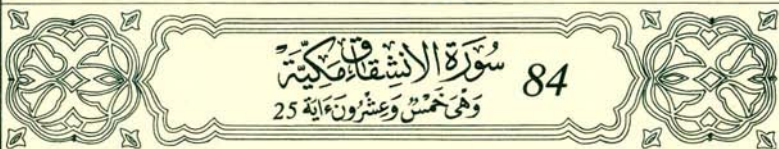 سُورَةُ الِانشِقَاقِ مَكِّيَّةٌ 84
وَهْيَ خَمْسٌ وَعِشْرُونَ ءَايَةً 25